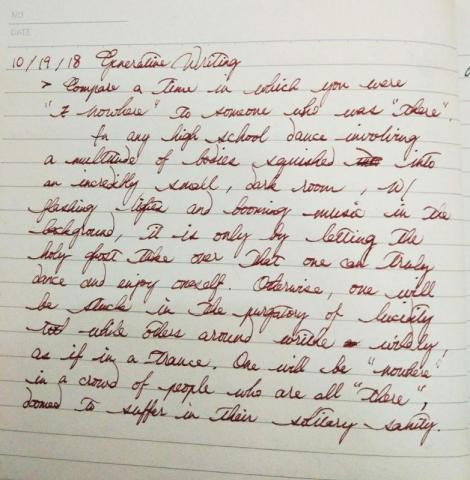 NO
DATE
10/19/18 Generative Writing
> Compare a time in which you were
"nowhere" to someone who was "there".
In any high school dance involving
a multitude of bodies squished into
an incredibly small, dark room, w/
flashing lights and booming music in the
background, it is only by letting the
holy ghost take over that one can truly
dance and enjoy oneself. Otherwise, one will
be stuck in the purgatory of lucidity
while others around writhe wildly
as if in a trance. One will be "nowhere"
in a crowd of people who are all "there",
doomed to suffer in their solitary sanity.